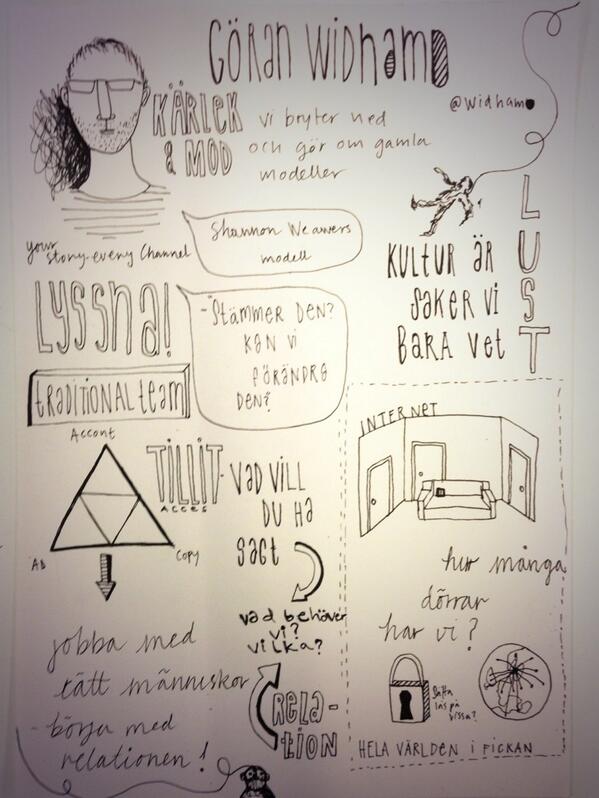 GÖRAN WIDHAM
@widham
KÄRLEK
& MOD
vi bryter ned
och gör om gamla
modeller
your story-every Channel
Shannon Weawers
modell
LUST
KULTUR ÄR
SAKER VI
BARA Vet
Lyssna!
-Stämmer DEN?
KAN VI
FÖRÄNDRA
DEN?
tRADITIONAL team
Accont
AD
Copy
TILLIT-
Acces
VAD VILL
DU HA
SAGT
vad behöver
vi?
vilka?
RELA-
tION
jobba med
rätt människor
- börja med
relationen!
INTERNET
hur många
dörrar
har vi?
Sätta
lås på
vissa?
HELA VÄRLDEN i FICKAN